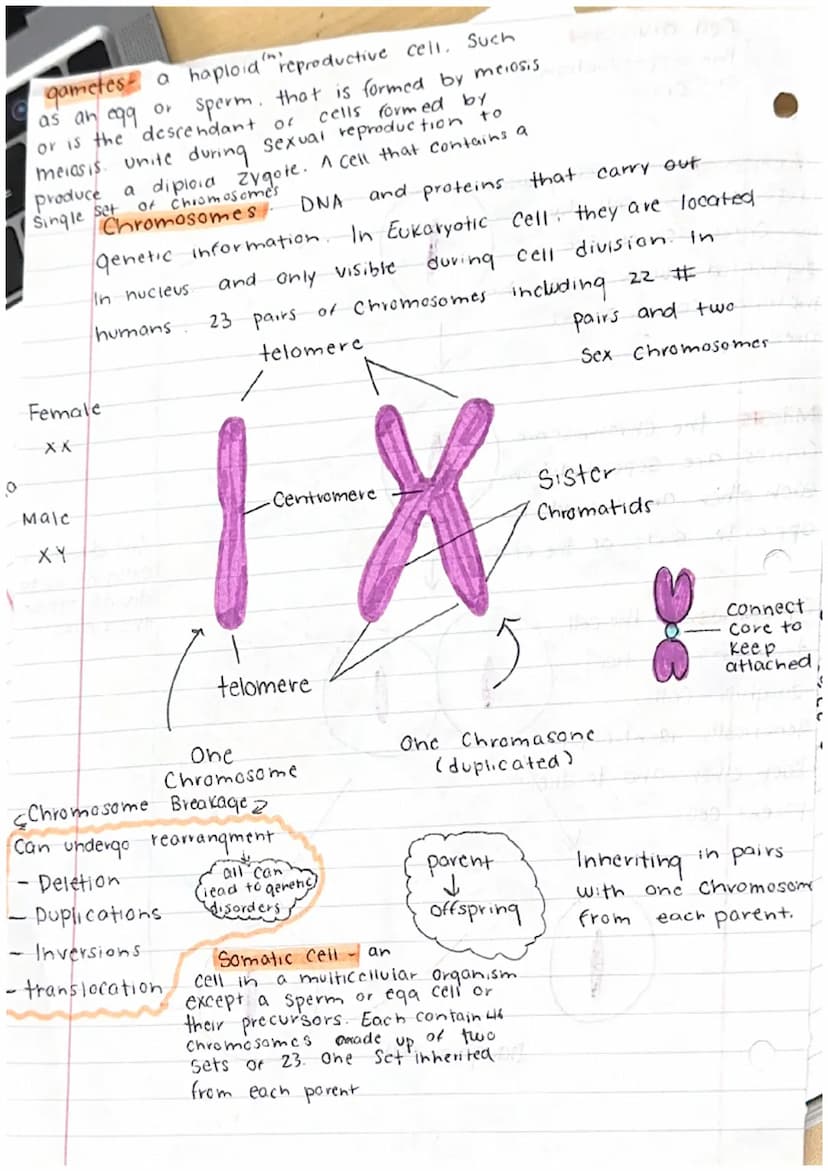 gametes- a haploid (n) reproductive cell. Such
as an egg or sperm. that is formed by meiosis
or is the descendant of cells formed by
meiosis. unite during sexual reproduction to
produce a diploid zygote. A cell that contains a
single set of chromosomes
Chromosomes. DNA and proteins that carry out
genetic information. In Eukaryotic cell, they are located
In nucleus and only visible during cell division. In
humans. 23 pairs of chromosomes including 22 #
pairs and two
Sex Chromosomes
telomere
Female
XX
Male
XY
Centromere
Sister
Chromatids
connect
core to
keep
attached
telomere
One
Chromosome
One Chromasone
(duplicated)
Chromosome Breakage
Can undergo rearrangment
- Deletion
- Duplications
- Inversions
- translocation
all can
lead to genetic
disorders
parent
↓
offspring
Inheriting in pairs
with one chromosom
from each parent.
Somatic Cell - an
cell in a multicellular organism
except a sperm or egg cell or
their precursors. Each contain 46
chromosomes made up of two
sets of 23. One set inherited
from each parent